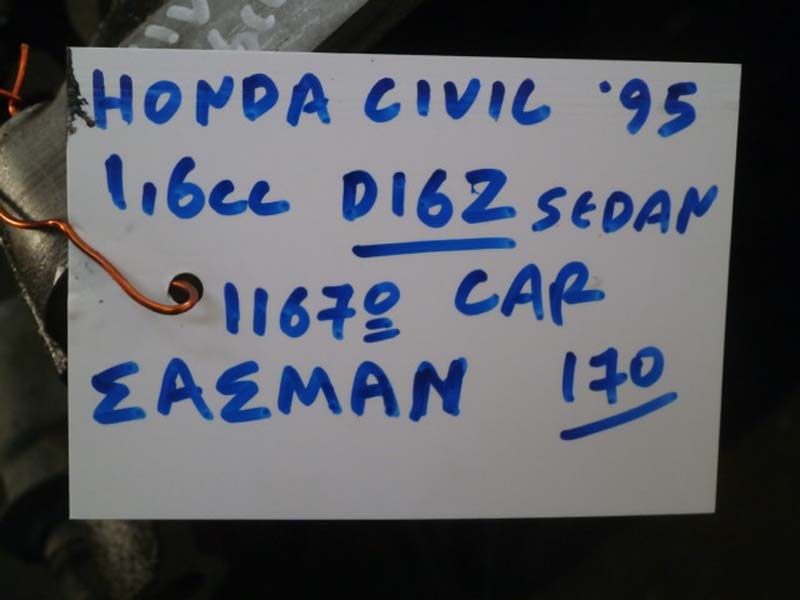 HONDA CIVIC '95
1,6cc D16Z SEDAN
11670 CAR
ΣΑΣΜΑΝ 170